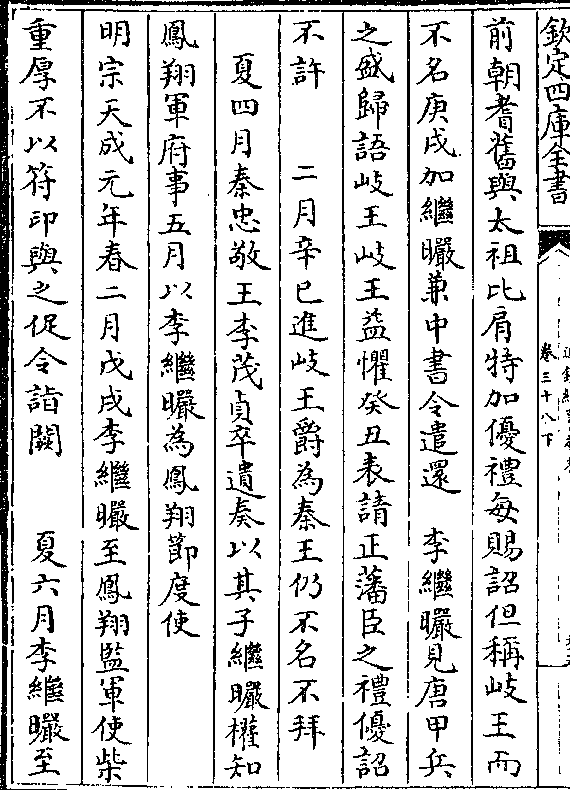 欽定四庫全書
卷三十八下
前朝耆舊與太祖比肩特加優禮每賜詔但稱岐王而
不名庚戌加繼曮兼中書令遣還　李繼曮見唐甲兵
之盛歸語岐王岐王益懼癸丑表請正藩臣之禮優詔
不許　二月辛巳進岐王爵為秦王仍不名不拜
夏四月秦忠敬王李茂貞卒遺奏以其子繼曮權知
鳳翔軍府事五月以李繼曮為鳳翔節度使
明宗天成元年春二月戊戌李繼曮至鳳翔監軍使柴
重厚不以符印與之促令詣闕　夏六月李繼曮至